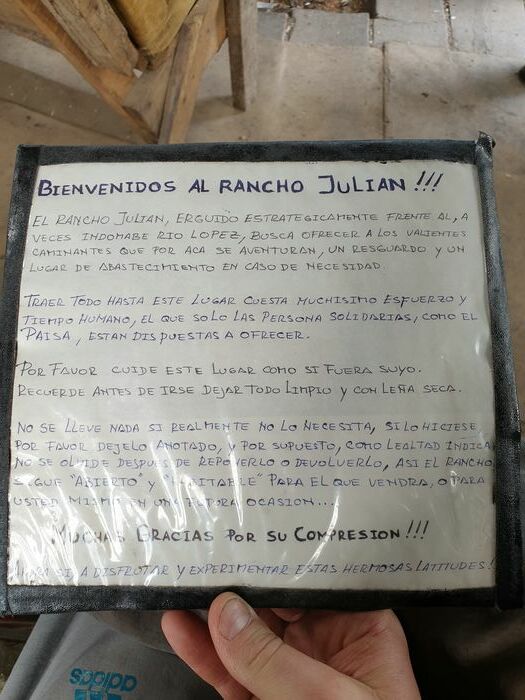 BIENVENIDOS AL RANCHO JULIAN !!!
EL RANCHO JULIAN, ERGUIDO ESTRATEGICAMENTE FRENTE AL, A
VECES INDOMABE RIO LOPEZ, BUSCA OFRECER A LOS VALIENTES
CAMINANTES QUE POR ACA SE AVENTURAN, UN RESGUARDO Y UN
LUGAR DE ABASTECIMIENTO EN CASO DE NECESIDAD.
TRAER TODO HASTA ESTE LUGAR CUESTA MUCHISIMO ESFUERZO Y
TIEMPO HUMANO, EL QUE SOLO LAS PERSONA SOLIDARIAS, COMO EL
PAISA, ESTAN DISPUESTAS A OFRECER.
POR FAVOR CUIDE ESTE LUGAR COMO SI FUERA SUYO.
RECUERDE ANTES DE IRSE DEJAR TODO LIMPIO Y CON LEÑA SECA.
NO SE LLEVE NADA SI REALMENTE NO LO NECESITA, SI LO HICIESE
POR FAVOR DEJELO ANOTADO, Y POR SUPUESTO, COMO LEALTAD INDICA
NO SE OLVIDE DESPUES DE REPONERLO O DEVOLVERLO, ASI EL RANCHO
SIGUE "ABIERTO" Y "HABITABLE" PARA EL QUE VENDRA, O PARA
USTED MISMO EN UNA FUTURA OCASION....
MUCHAS GRACIAS POR SU COMPRESION !!!
AHORA SI A DISFRUTAR Y EXPERIMENTAR ESTAS HERMOSAS LATITUDES!
adidas